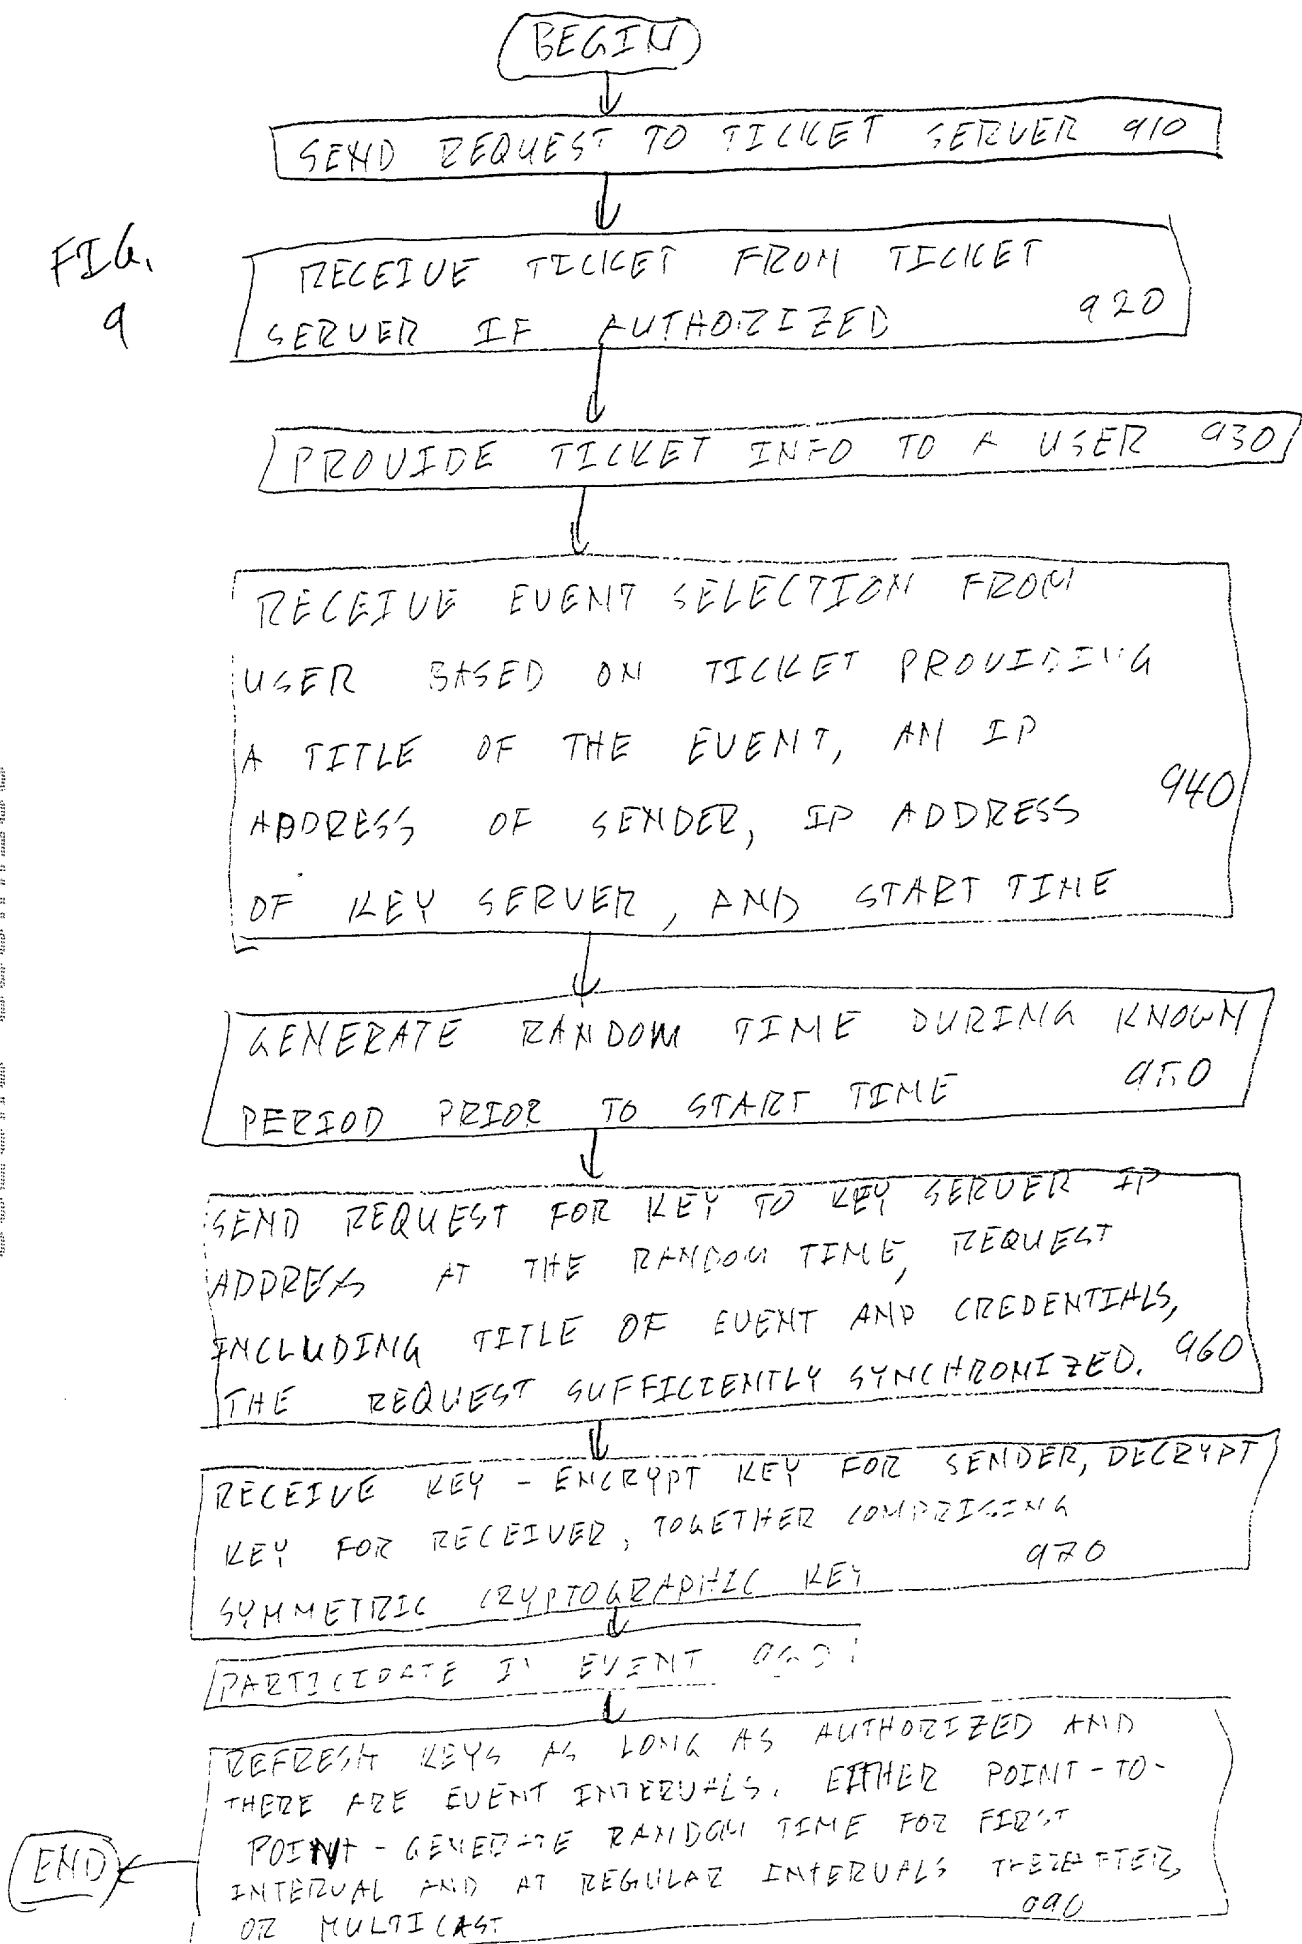 BEGIN
SEND REQUEST TO TICKET SERVER 910
FIG.
9
RECEIVE TICKET FROM TICKET
SERVER IF AUTHORIZED 920
PROVIDE TICKET INFO TO A USER 930
RECEIVE EVENT SELECTION FROM
USER BASED ON TICKET PROVIDING
A TITLE OF THE EVENT, AN IP
ADDRESS OF SENDER, IP ADDRESS 940
OF KEY SERVER, AND START TIME
GENERATE RANDOM TIME DURING KNOWN
PERIOD PRIOR TO START TIME 950
SEND REQUEST FOR KEY TO KEY SERVER IP
ADDRESS AT THE RANDOM TIME, REQUEST
INCLUDING TITLE OF EVENT AND CREDENTIALS,
THE REQUEST SUFFICIENTLY SYNCHRONIZED. 960
RECEIVE KEY - ENCRYPT KEY FOR SENDER, DECRYPT
KEY FOR RECEIVER, TOGETHER COMPRISING
SYMMETRIC CRYPTOGRAPHIC KEY 970
PARTICIPATE IN EVENT
REFRESH KEYS AS LONG AS AUTHORIZED AND
THERE ARE EVENT INTERVALS. EITHER POINT-TO-
POINT - GENERATE RANDOM TIME FOR FIRST
INTERVAL AND AT REGULAR INTERVALS THEREAFTER,
OR MULTICAST 990
END